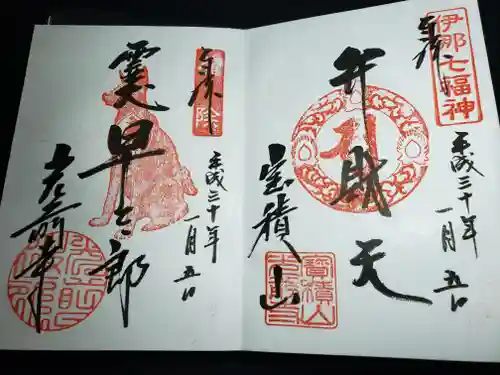 伊那七福神
奉拝
平成三十年
一月五日
弁財天
宝積山
寳積山
奉拝
平成三十年
一月五日
霊犬早太郎
光前寺